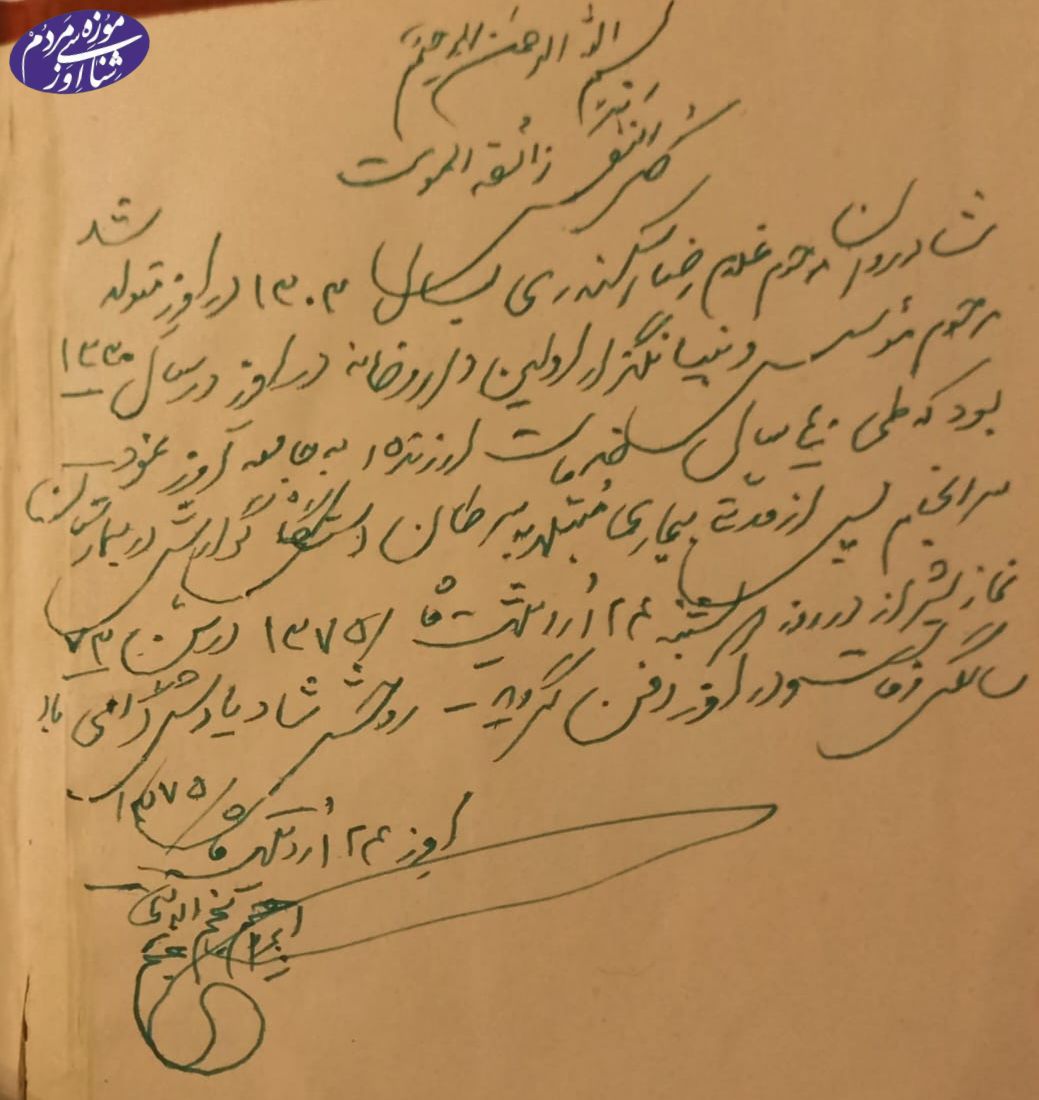 موزه مردم
شناسی اوز
بسم الله الرحمن الرحیم
کل نفس ذائقه الموت
شادروان مرحوم غلامرضا اسکندری بسال ۱۳۰۳ در اوز متولد شد
مرحوم مؤسس و بنیانگزار اولین داروخانه در اوز در سال ۱۳۳۰
بود که طی سال خدمات ارزنده به جامعه اوز نمود
سرانجام پس از مدتی بیماری مبتلا به سرطان گوارش در بیمارستان
نمازی شیراز در روز شنبه ۲۴ اردیبهشت ماه ۱۳۷۵ در سن ۷۳
سالگی وفات و در اوز دفن گردید – روحش شاد یادش گرامی باد
اوز ۲۴ اردیبهشت ماه ۱۳۷۵